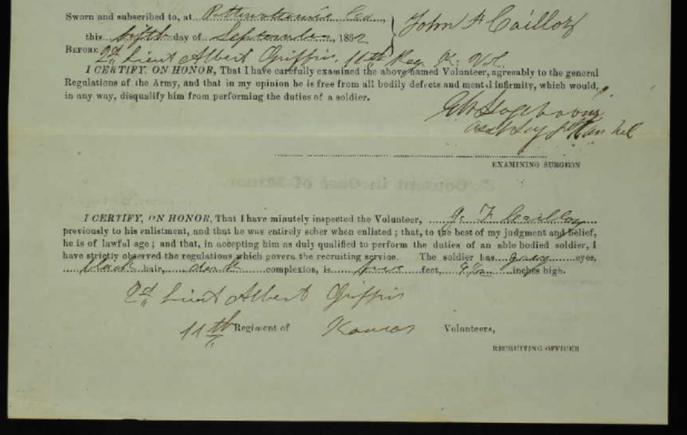 Sworn and subscribed to, at Pottawatomie Co
this fifth day of September 1862
John F Cailloz
BEFORE 2d Lieut Albert Griffin 11th Reg K. Vol.
I CERTIFY, ON HONOR, That I have carefully examined the above named Volunteer, agreeably to the general
Regulations of the Army, and that in my opinion he is free from all bodily defects and mental infirmity, which would,
in any way, disqualify him from performing the duties of a soldier.
EXAMINING SURGEON
I CERTIFY, ON HONOR, That I have minutely inspected the Volunteer, J. F. Cailloz
previously to his enlistment, and that he was entirely sober when enlisted; that, to the best of my judgment and belief,
he is of lawful age; and that, in accepting him as duly qualified to perform the duties of an able bodied soldier, I
have strictly observed the regulations which govern the recruiting service. The soldier has grey eyes,
black hair, dark complexion, is five feet, inches high.
2d Lieut Albert Griffin
11th Regiment of Kansas Volunteers,
RECRUITING OFFICER